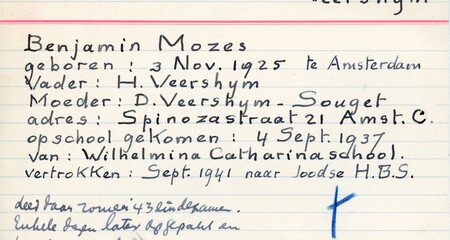 Benjamin Mozes
geboren : 3 Nov. 1925 te Amsterdam
Vader : H. Veershym
Moeder : D. Veershym - Souget
adres : Spinozastraat 21 Amst. C.
op school gekomen : 4 Sept. 1937
van : Wilhelmina Catharinaschool.
vertrokken : Sept. 1941 naar Joodse H.B.S.
deed daar zomer '43 eindexamen.
Enkele dagen later opgepakt en